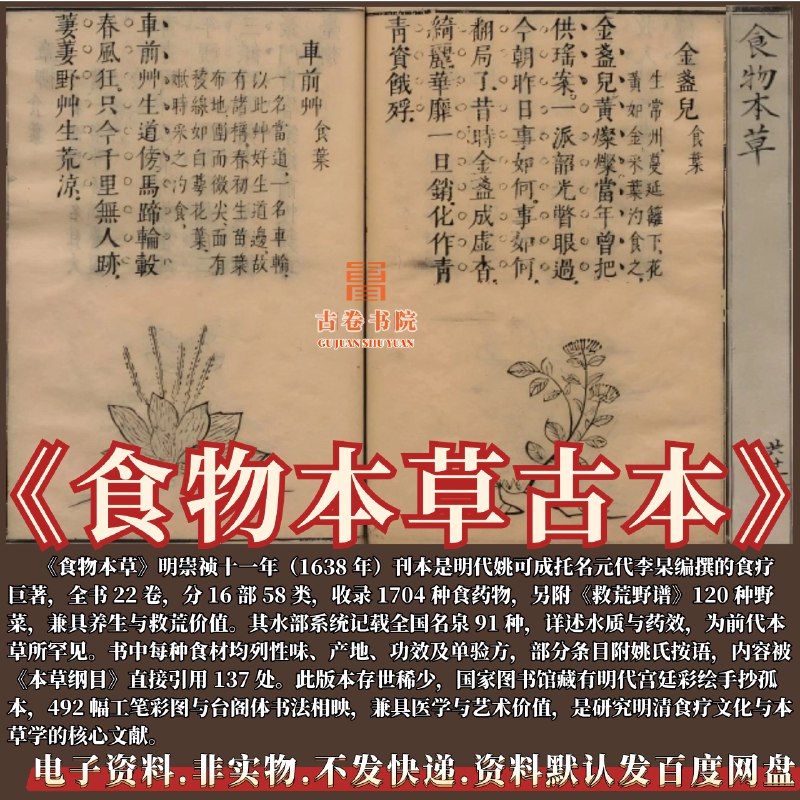 食物本草
金盞兒 食葉
生常州，蔓延籬下，花
黃如金，采葉汋食之，
金盞兒黃燦燦當年曾把
供瑤案，一派韶光瞥眼過，
今朝昨日事如何，事如何，
翻局了，昔時金盞成虛杳，
綺麗華靡一旦銷，化作青
青資餓殍，
車前艸 食葉
一名當道，一名車輪，
以此艸好生道邊，故
有諸稱，春初生苗葉
布地圓而微尖，面有
稜線如白蔓花葉，
嫩時采之汋食，
車前艸生道傍馬蹄輪轂
春風狂，只今千里無人跡，
萋萋野艸生荒涼，
古卷书院
GUJUANSHUYUAN
《食物本草古本》
《食物本草》明崇祯十一年（1638 年）刊本是明代姚可成托名元代李杲编撰的食疗
巨著，全书 22 卷，分 16 部 58 类，收录 1704 种食药物，另附《救荒野谱》120 种野
菜，兼具养生与救荒价值。其水部系统记载全国名泉 91 种，详述水质与药效，为前代本
草所罕见。书中每种食材均列性味、产地、功效及单验方，部分条目附姚氏按语，内容被
《本草纲目》直接引用 137 处。此版本存世稀少，国家图书馆藏有明代宫廷彩绘手抄孤
本，492 幅工笔彩图与台阁体书法相映，兼具医学与艺术价值，是研究明清食疗文化与本
草学的核心文献。
电子资料.非实物.不发快递.资料默认发百度网盘